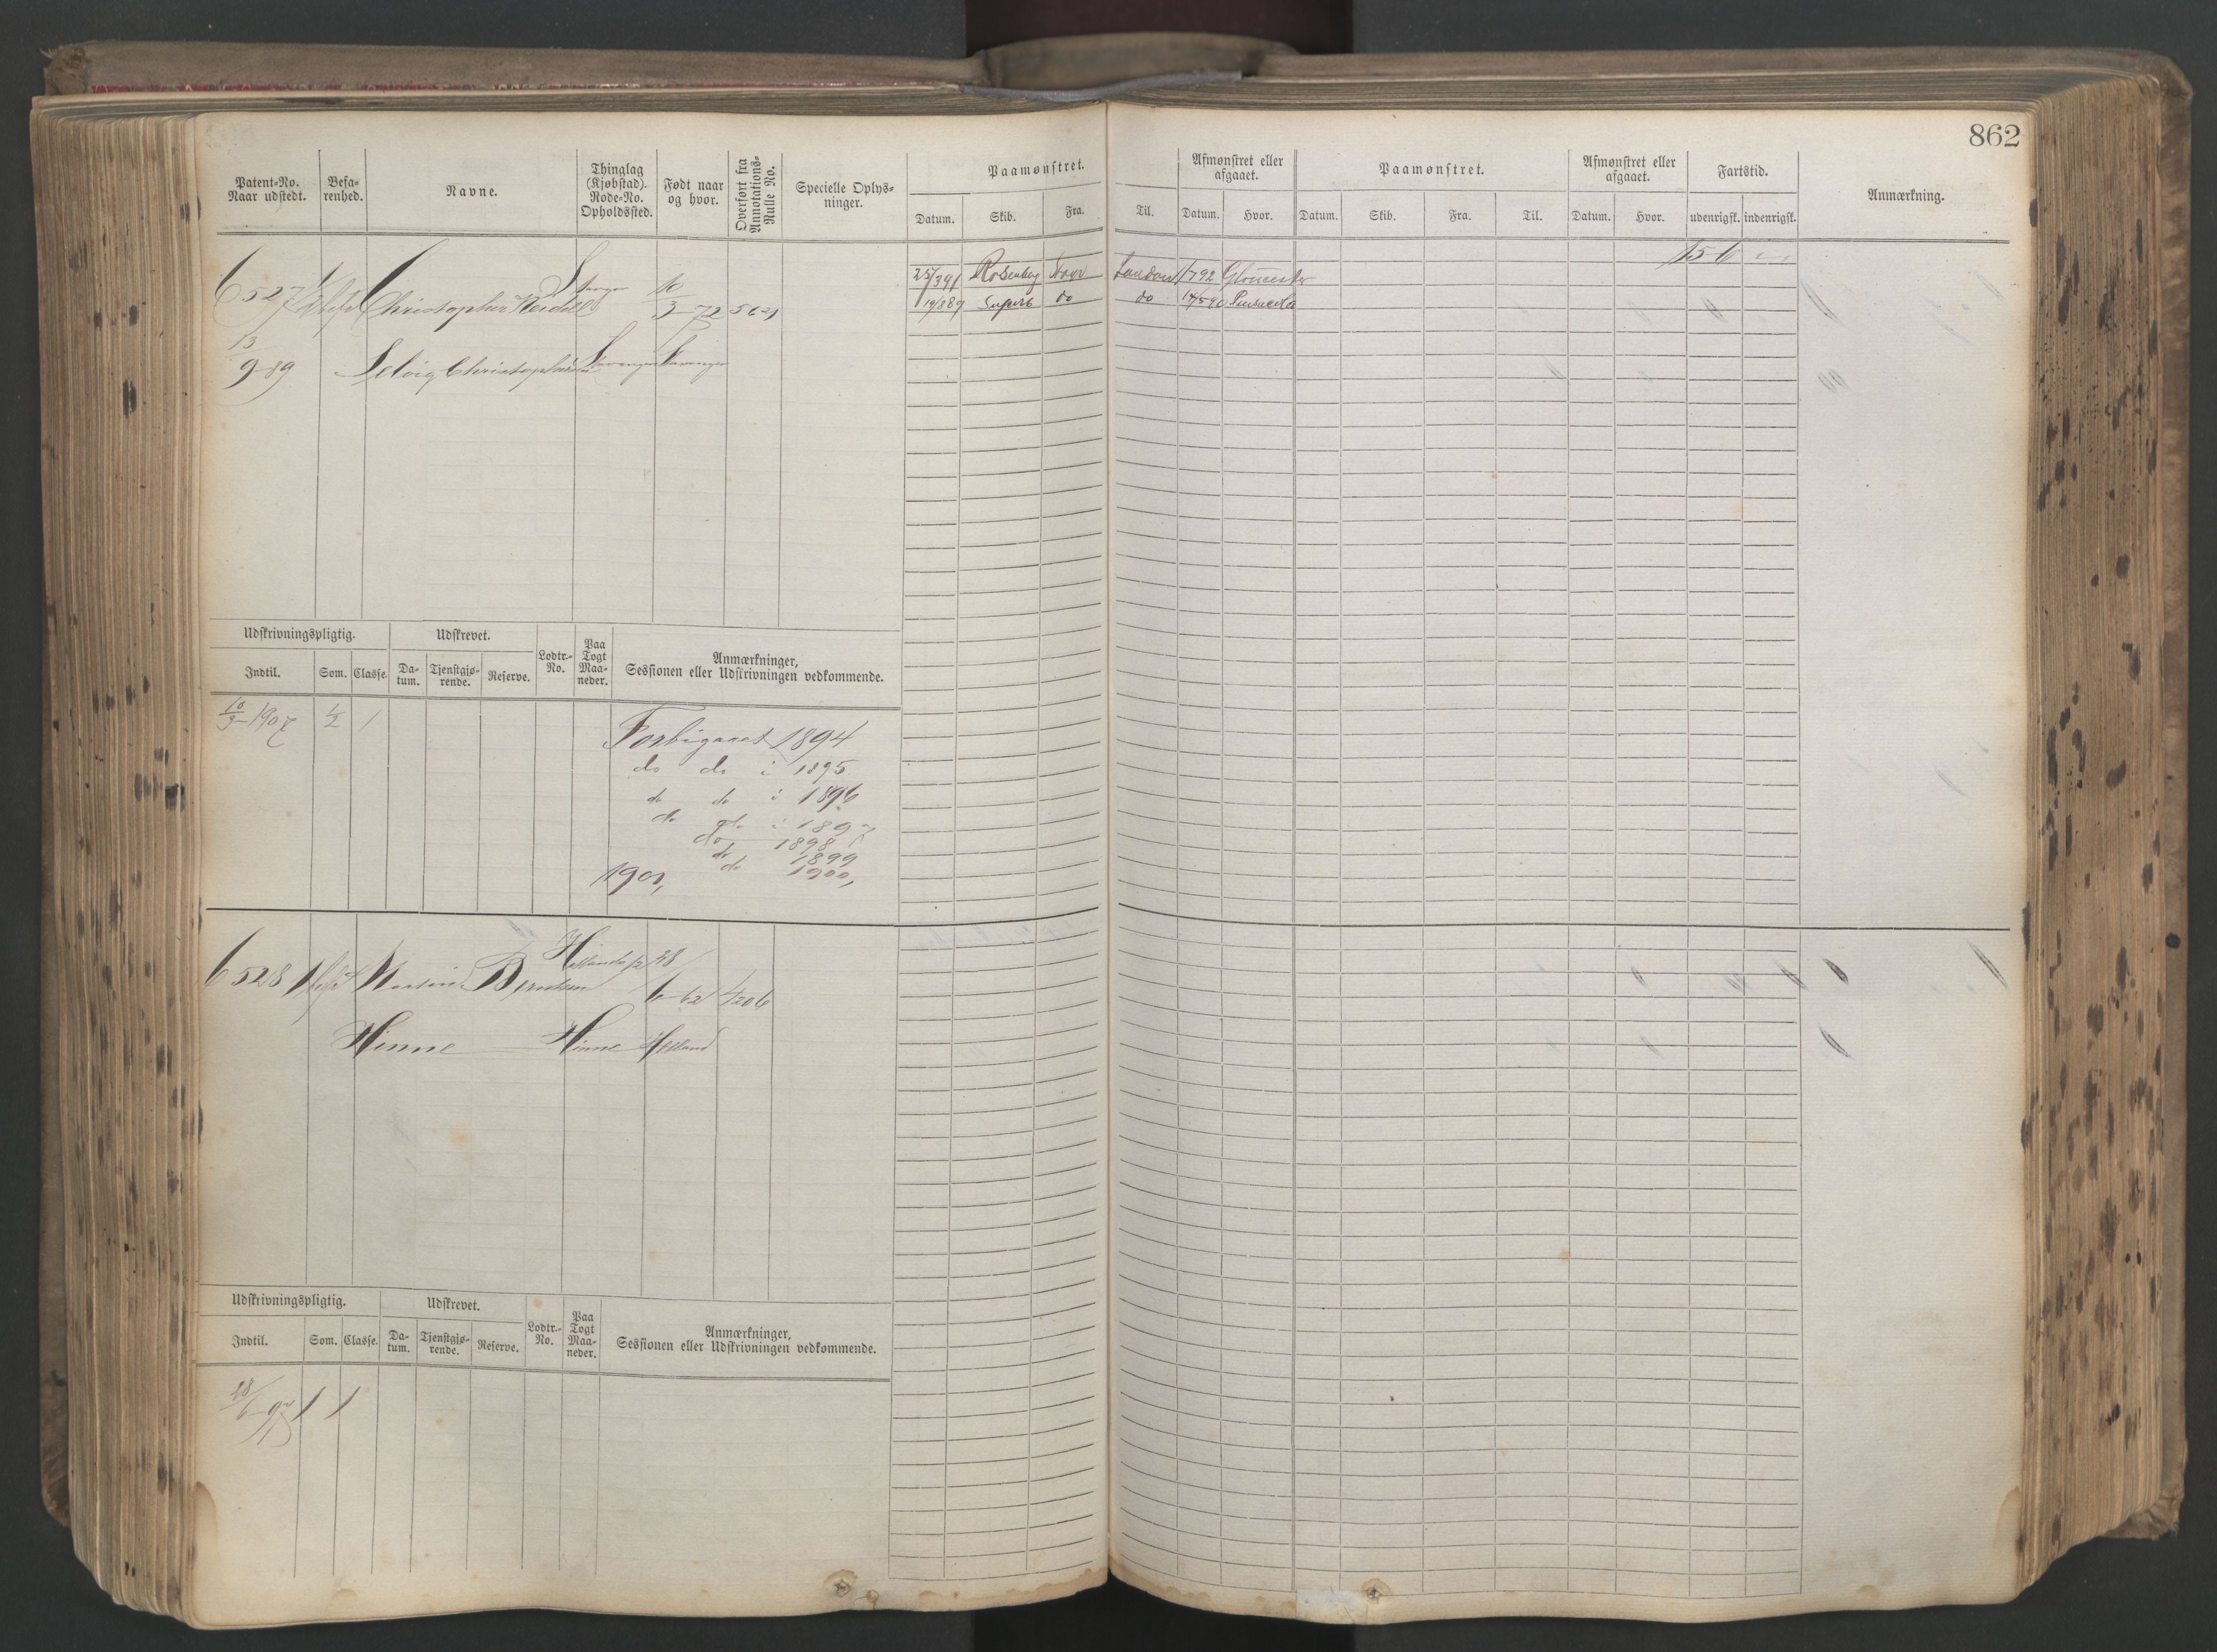 862
Patent-No. Naar udstedt.
Befarenhed.
Navne.
Thinglag (Kjøbstad). Rode-No. Opholdssted.
Født naar og hvor.
Overført fra Annotations-Rulle No.
Specielle Oplysninger.
Paamønstret.
Datum. Skib. Fra. Til.
Afmønstret eller afgaaet.
Datum. Hvor.
Paamønstret.
Datum. Skib. Fra. Til.
Afmønstret eller afgaaet.
Datum. Hvor.
Fartstid.
udenrigsk. indenrigsk.
Anmærkning.
6527 Christopher 10/3-72
13/9-89 Selvig Christophersen Stavanger Stavanger
25/391 Rosenberg London 1/792 Gloucester
19/889 Superb do do 14/590 Pensacola
Udskrivningspligtig.
Indtil. Som. Classe.
Udskrevet.
Datum. Tjenstgjørende. Reserve.
Lodtr.-No.
Paa Togt Maaneder.
Anmærkninger, Sessionen eller Udskrivningen vedkommende.
10/3-1907 1/2 1
Forbigaaet 1894
do do i 1895
do do i 1896
do do i 1897
do 1898
do 1899
do 1900,
1901,
6528 Berntsen 6-62 4206
Hinne Hinne
Udskrivningspligtig.
Indtil. Som. Classe.
Udskrevet.
Datum. Tjenstgjørende. Reserve.
Lodtr.-No.
Paa Togt Maaneder.
Anmærkninger, Sessionen eller Udskrivningen vedkommende.
1 1